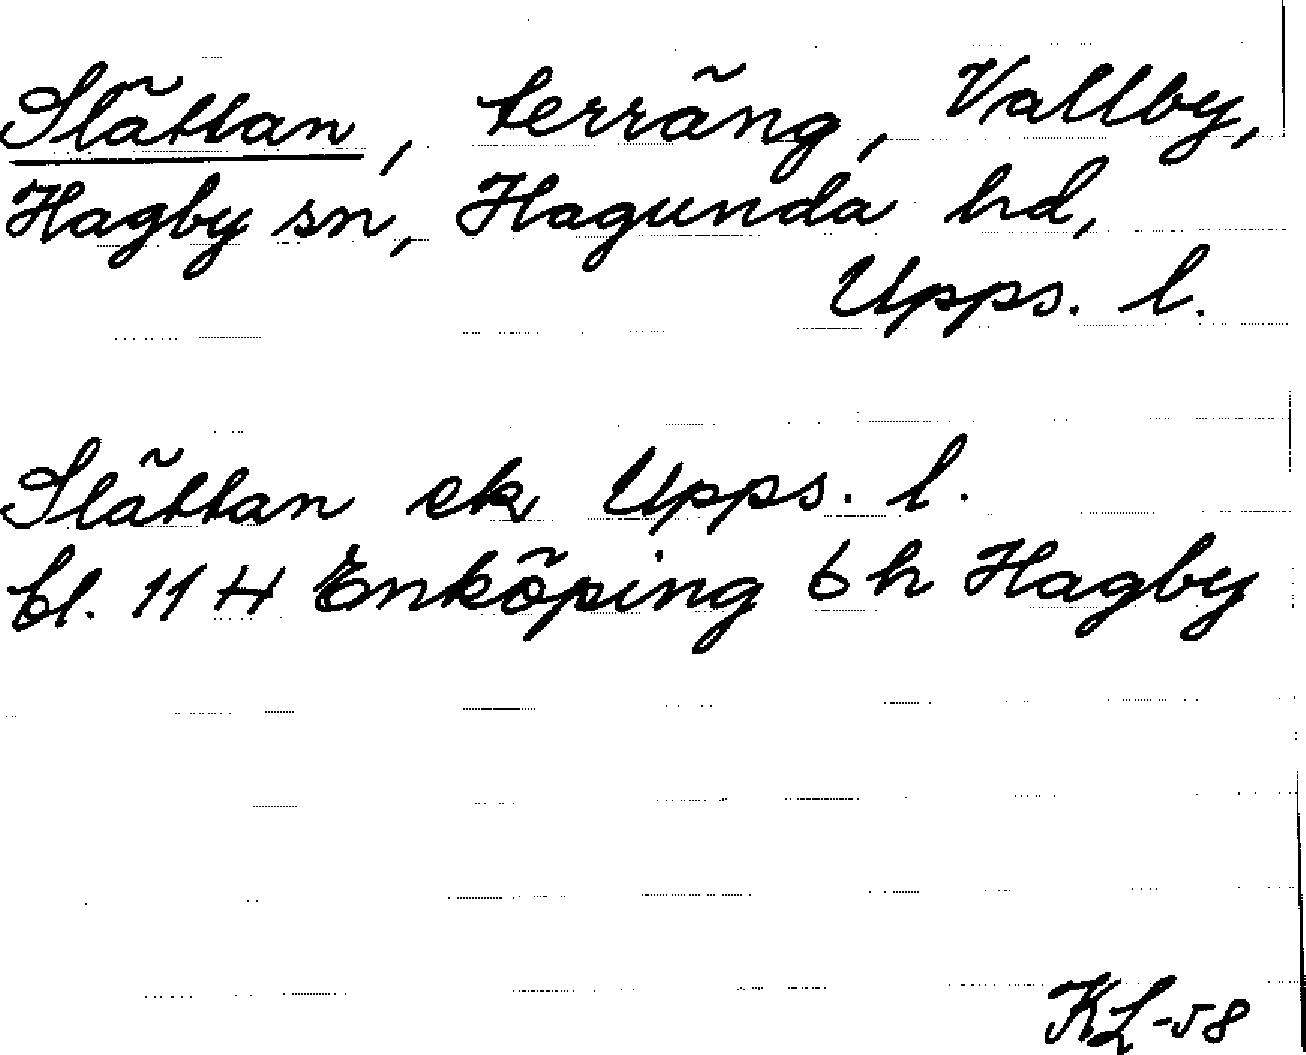 Slättan, terräng, Vallby,
Hagby sn, Hagunda hd,
Upps. l.
Slättan ek Upps. l.
bl. 114 Enköping 6h Hagby
KL-58